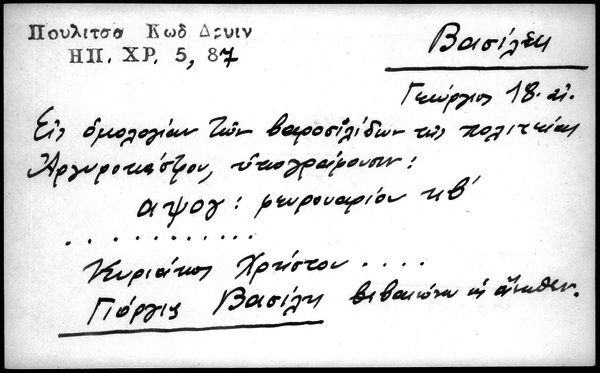 Πουλιτσα Κωδ Δρυιν
ΗΠ. ΧΡ. 5, 87
Βασίλης
Γεώργιος 18. αἰ.
Εἰς ὁμολογίαν τῶν βαροσιλίδων τῆς πολιτείας
Ἀργυροκάστρου, ὑπογράφουσιν:
αψογ: φευρουαρίου κβ'
. . . . . . . . . . . .
Κυριάκος Χρήστου . . . .
Γιόργις Βασίλη βεβαιώνω ὡς ἄνωθεν.